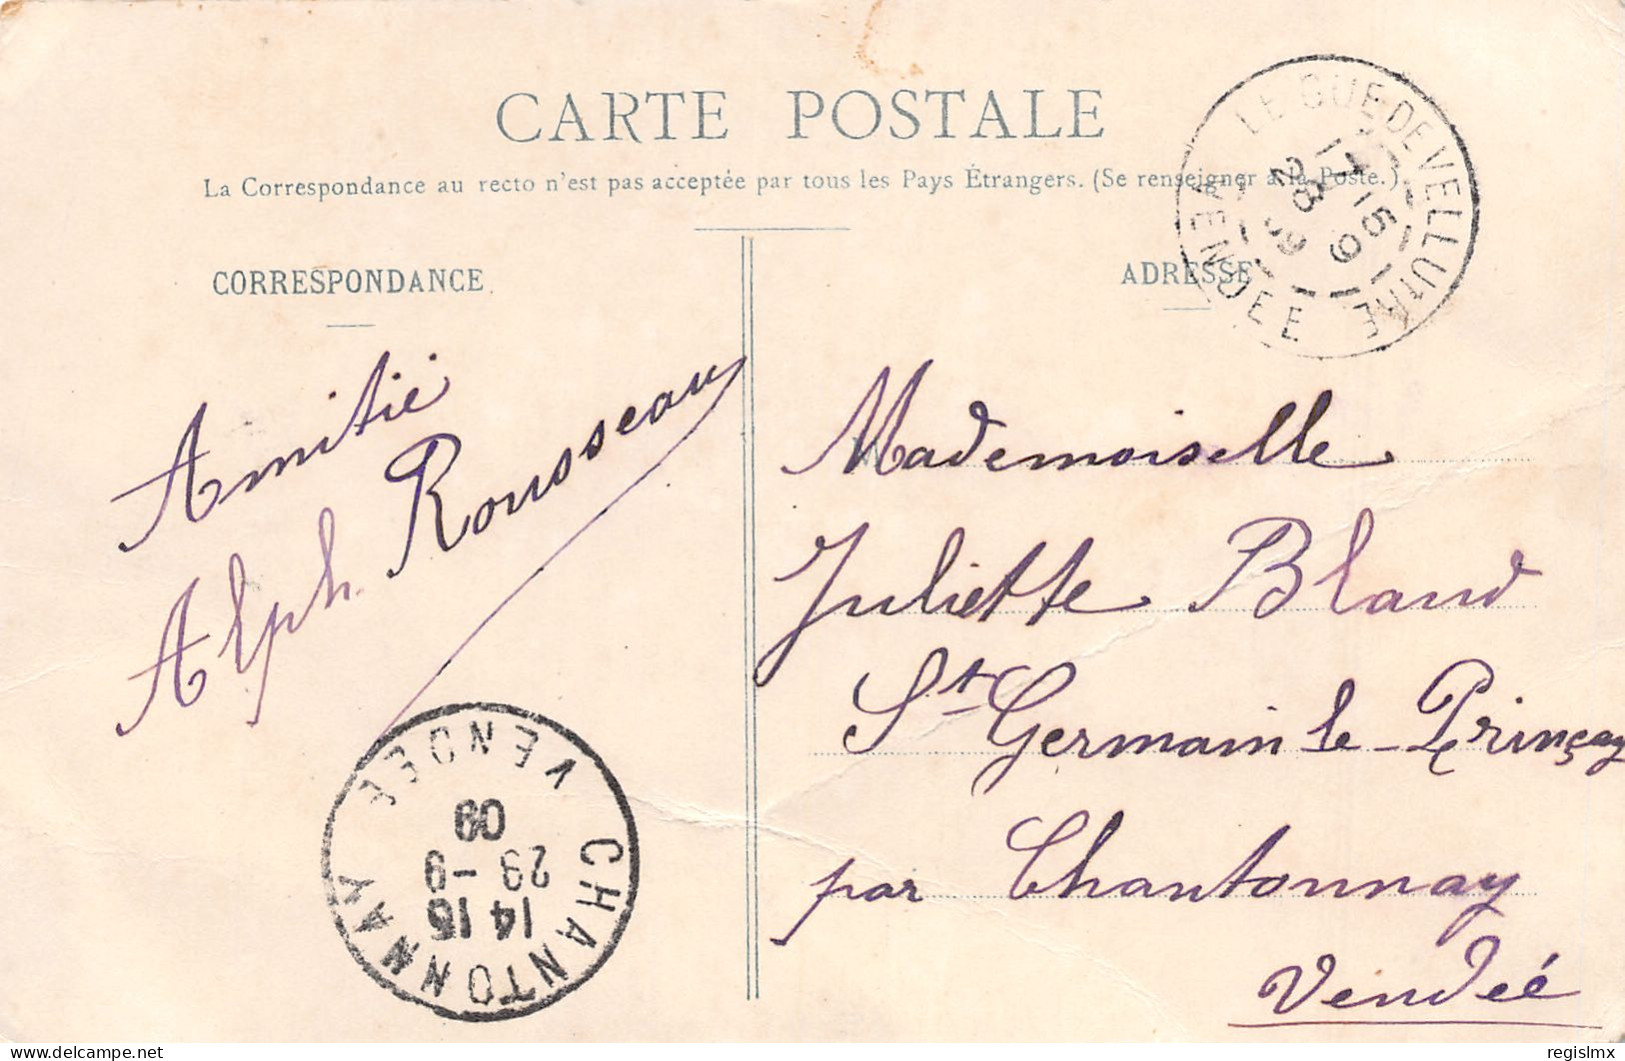 CARTE POSTALE
La Correspondance au recto n'est pas acceptée par tous les Pays Étrangers. (Se renseigner à la Poste.)
CORRESPONDANCE
Amitié
Alph. Rousseau
ADRESSE
Mademoiselle
Juliette Bland
St Germain le Prinçay
par Chantonnay
Vendée
LE GUE-DE-VELLUIRE
VENDEE
17 15
28 9
09
CHANTONNAY
VENDEE
14 15
29 -9
09
regislmx